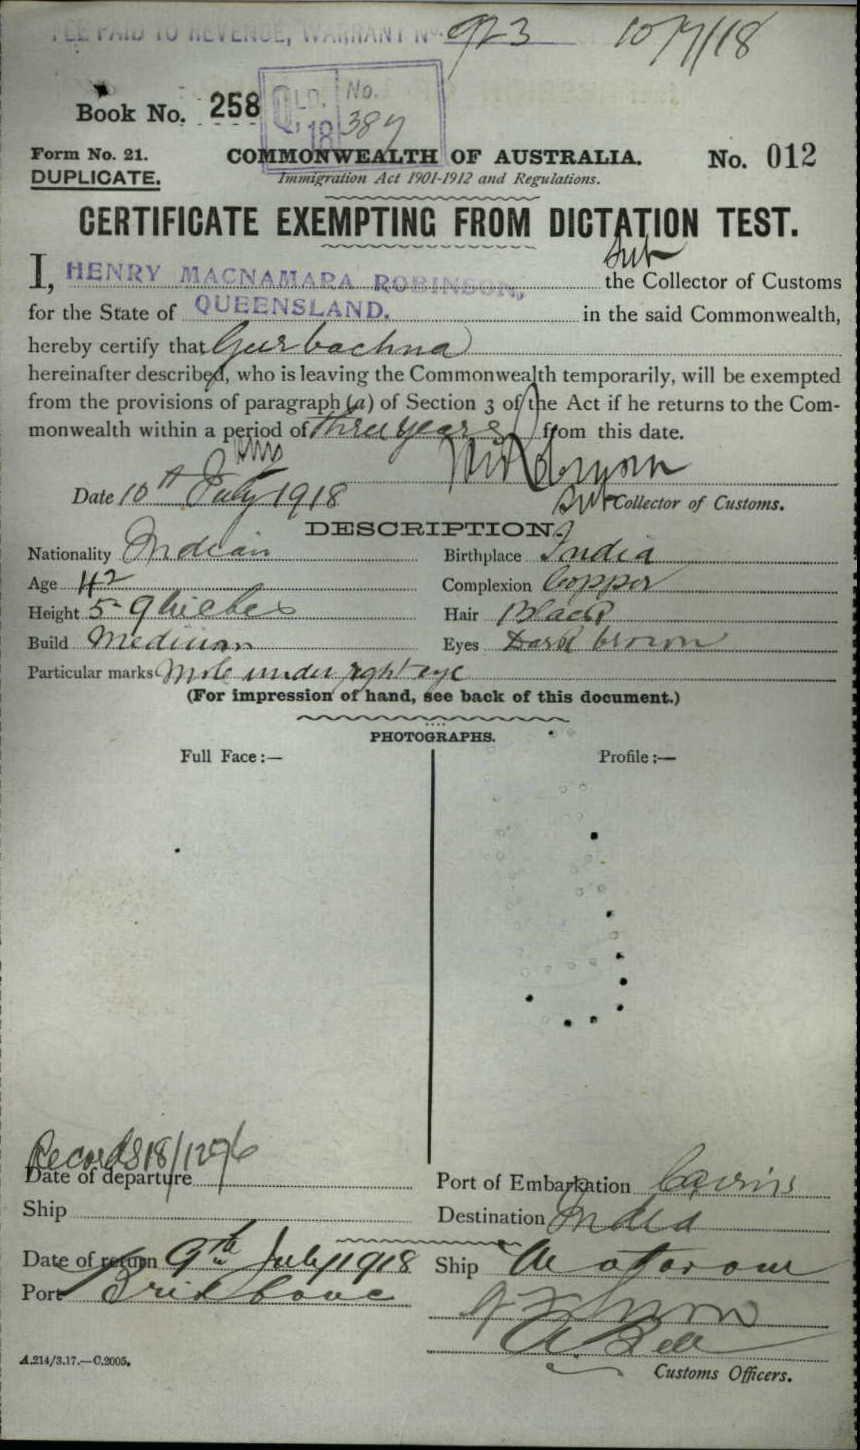 FEE PAID TO REVENUE, WARRANT No 923 10/7/18
Book No. 258
QLD. No.
18 387
Form No. 21. COMMONWEALTH OF AUSTRALIA. No. 012
DUPLICATE. Immigration Act 1901-1912 and Regulations.
CERTIFICATE EXEMPTING FROM DICTATION TEST.
Sub
I, HENRY MACNAMARA ROBINSON, the Collector of Customs
for the State of QUEENSLAND. in the said Commonwealth,
hereby certify that Gurbachna
hereinafter described, who is leaving the Commonwealth temporarily, will be exempted
from the provisions of paragraph (a) of Section 3 of the Act if he returns to the Com-
monwealth within a period of three years from this date.
Date 10th July 1918 Sub Collector of Customs.
DESCRIPTION.
Nationality Indian Birthplace India
Age 42 Complexion Copper
Height 5-9 inches Hair Black
Build Medium Eyes Dark brown
Particular marks Mole under right eye
(For impression of hand, see back of this document.)
PHOTOGRAPHS.
Full Face:— Profile:—
Records 18/1296
Date of departure Port of Embarkation Cairns
Ship Destination India
Date of return 9th July 1918 Ship
Port Brisbane
A. Bell
A.214/3.17.—C.2005. Customs Officers.